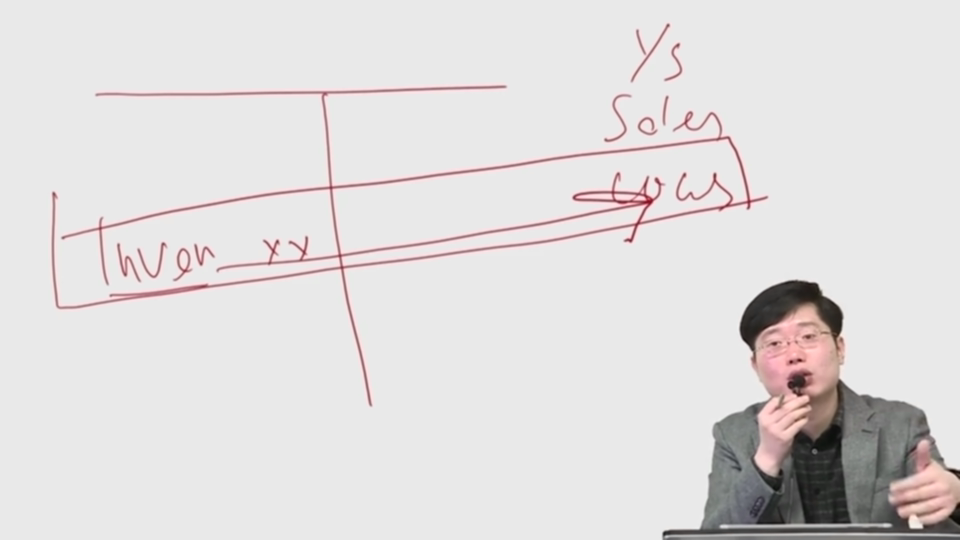 I/S
Sales
COGS
Inven xx